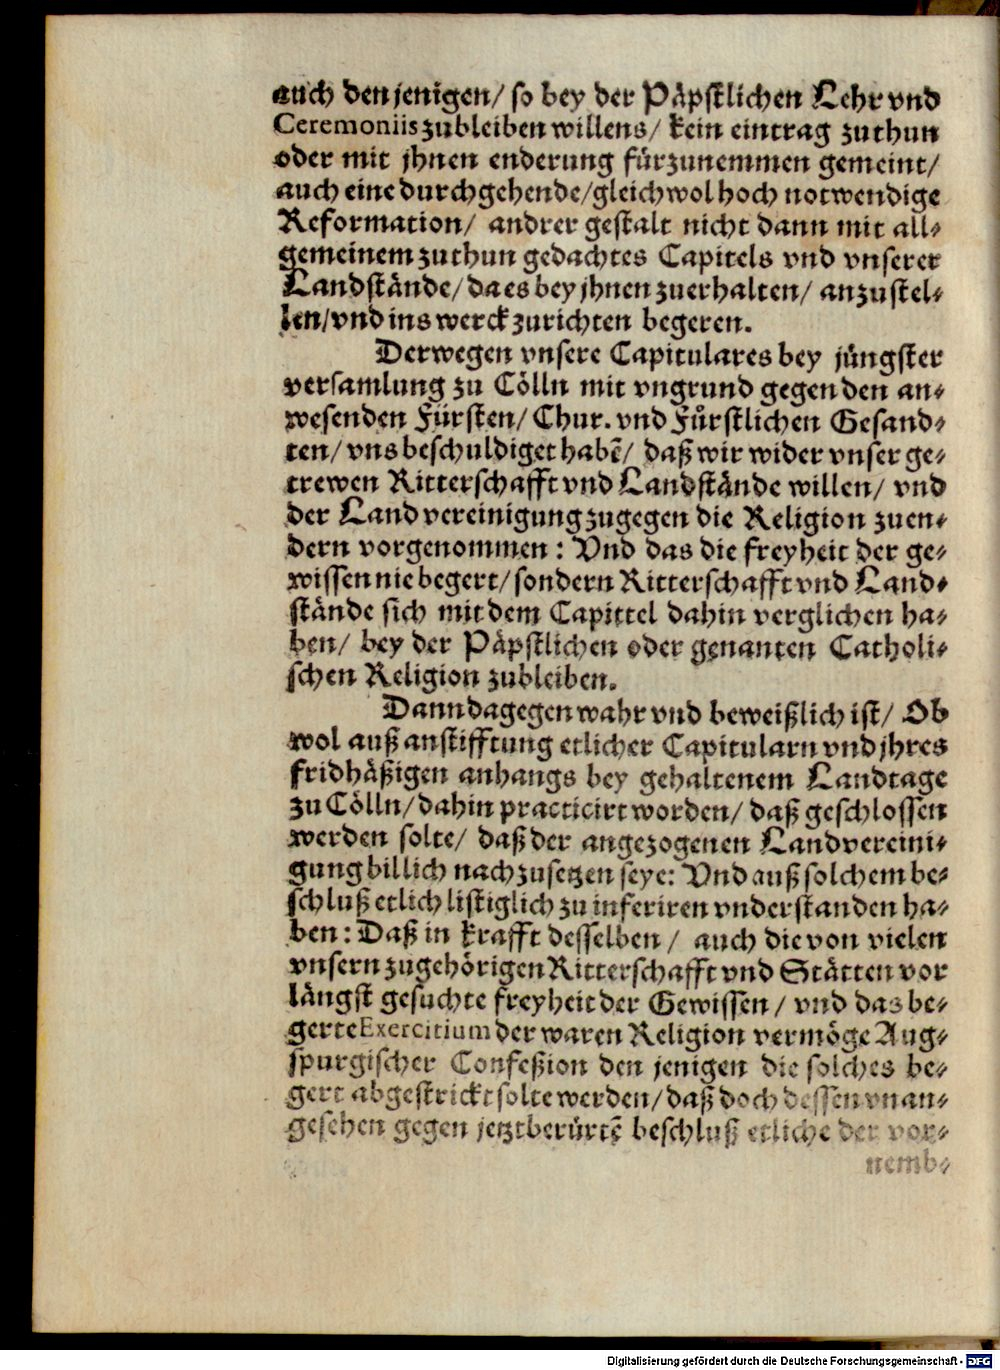 auch den jenigen/ so bey der Päpstlichen Lehr vnd
Ceremoniis zubleiben willens/ kein eintrag zuthun
oder mit jhnen enderung fürzunemmen gemeint/
auch eine durchgehende/ gleichwol hoch notwendige
Reformation/ andrer gestalt nicht dann mit all-
gemeinem zuthun gedachtes Capitels vnd vnserer
Landstände/ da es bey jhnen zuerhalten/ anzustel-
len/ vnd ins werck zurichten begeren.
Derwegen vnsere Capitulares bey jüngster
versamlung zu Cölln mit vngrund gegen den an-
wesenden Fürsten/ Chur. vnd Fürstlichen Gesand-
ten/ vns beschuldiget habẽ/ daß wir wider vnser ge-
trewen Ritterschafft vnd Landstände willen/ vnd
der Landvereinigung zugegen die Religion zuen-
dern vorgenommen: Vnd das die freyheit der ge-
wissen nie begert/ sondern Ritterschafft vnd Land-
stände sich mit dem Capittel dahin verglichen ha-
ben/ bey der Päpstlichen oder genanten Catholi-
schen Religion zubleiben.
Dann dagegen wahr vnd beweißlich ist/ Ob
wol auß anstifftung etlicher Capitularn vnd jhres
fridhäßigen anhangs bey gehaltenem Landtage
zu Cölln/ dahin practicirt worden/ daß geschlossen
werden solte/ daß der angezogenen Landvereini-
gung billich nachzusetzen seye: Vnd auß solchem be-
schluß etlich listiglich zu inferiren vnderstanden ha-
ben: Daß in krafft desselben/ auch die von vielen
vnsern zugehörigen Ritterschafft vnd Stätten vor
längst gesuchte freyheit der Gewissen/ vnd das be-
gerte Exercitium der waren Religion vermöge Aug-
spurgischer Confeßion den jenigen die solches be-
gert abgestrickt solte werden/ daß doch dessen vnan-
gesehen gegen jetztberürtẽ beschluß etliche der vor-
nemb-
Digitalisierung gefördert durch die Deutsche Forschungsgemeinschaft - DFG